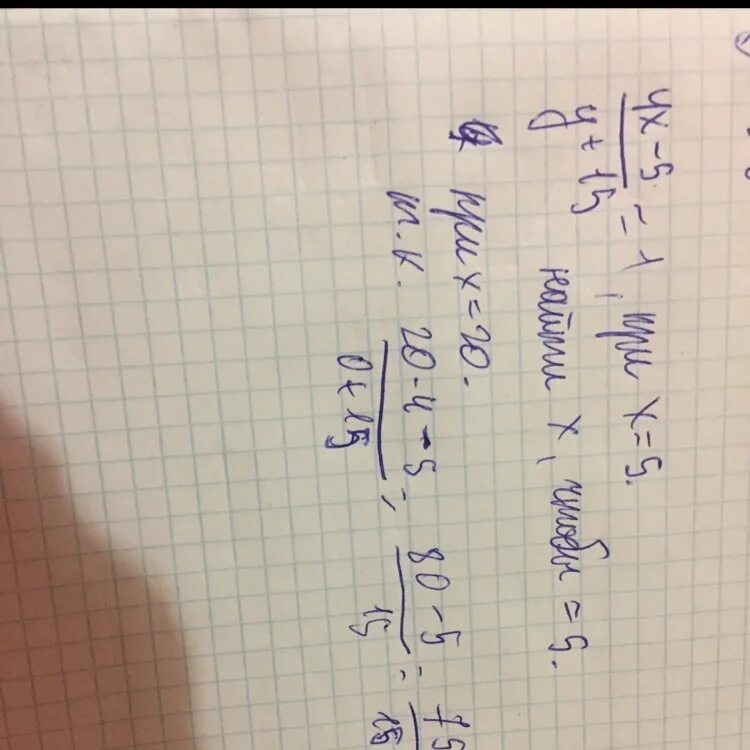 4x - 5 / y + 15 = 1, при x = 5.
найти x, чтобы = 5.
при x = 20.
т.к. 20·4 - 5 / 0 + 15 = 80 - 5 / 15 = 75 / 15